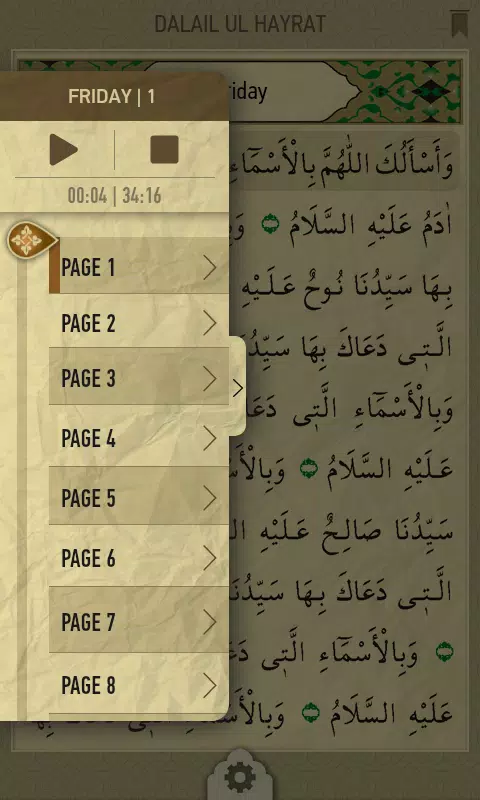 DALAIL UL HAYRAT
FRIDAY | 1
00:04 | 34:16
PAGE 1
PAGE 2
PAGE 3
PAGE 4
PAGE 5
PAGE 6
PAGE 7
PAGE 8
riday
وَأَسْأَلُكَ اللّٰهُمَّ بِالْأَسْمَٓاءِ
اٰدَمُ عَلَيْهِ السَّلَامُ
بِهَا سَيِّدُنَا نُوحٌ عَلَيْهِ
الَّتٖى دَعَاكَ بِهَا سَيِّدُ
وَبِالْأَسْمَٓاءِ الَّتٖى دَعَا
عَلَيْهِ السَّلَامُ وَبِالْأَسْ
سَيِّدُنَا صَالِحٌ عَلَيْهِ
الَّتٖى دَعَاكَ بِهَا سَيِّدُنَا
وَبِالْأَسْمَٓاءِ الَّتٖى دَعَ
عَلَيْهِ السَّلَامُ وَبِالْأَسْ